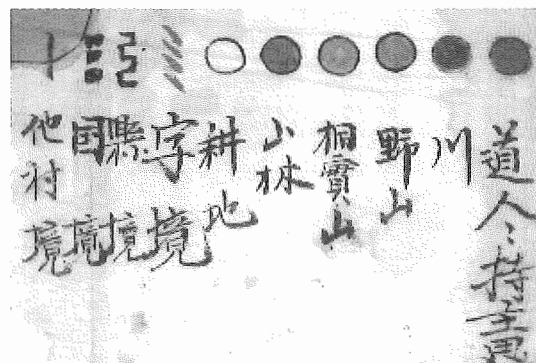 道人〻持
川
野山
桐實山
山林
耕地
字境
縣境
国境
他村境